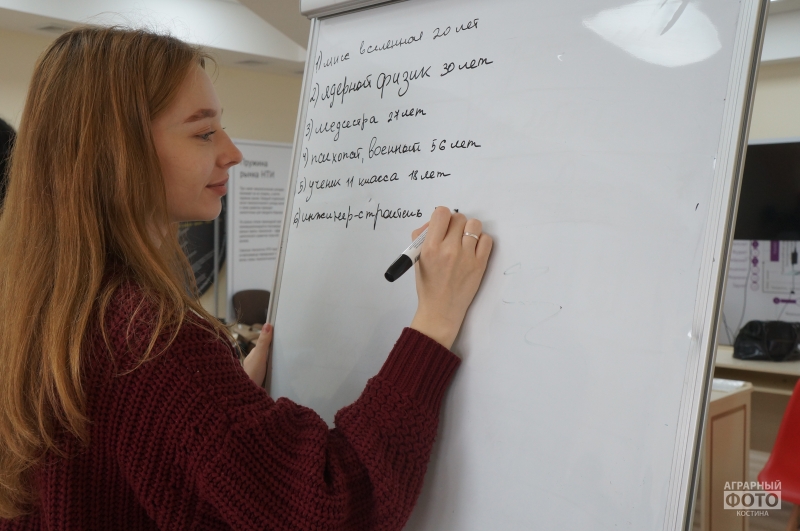 1) мисс вселенная 20 лет
2) ядерной физик 30 лет
3) медсестра 27 лет
4) психопат, военной 56 лет
5) ученик 11 класса 18 лет
6) инженер-строитель
пружина
рынка НТИ
АГРАРНЫЙ
ФОТО
КОСТИНА